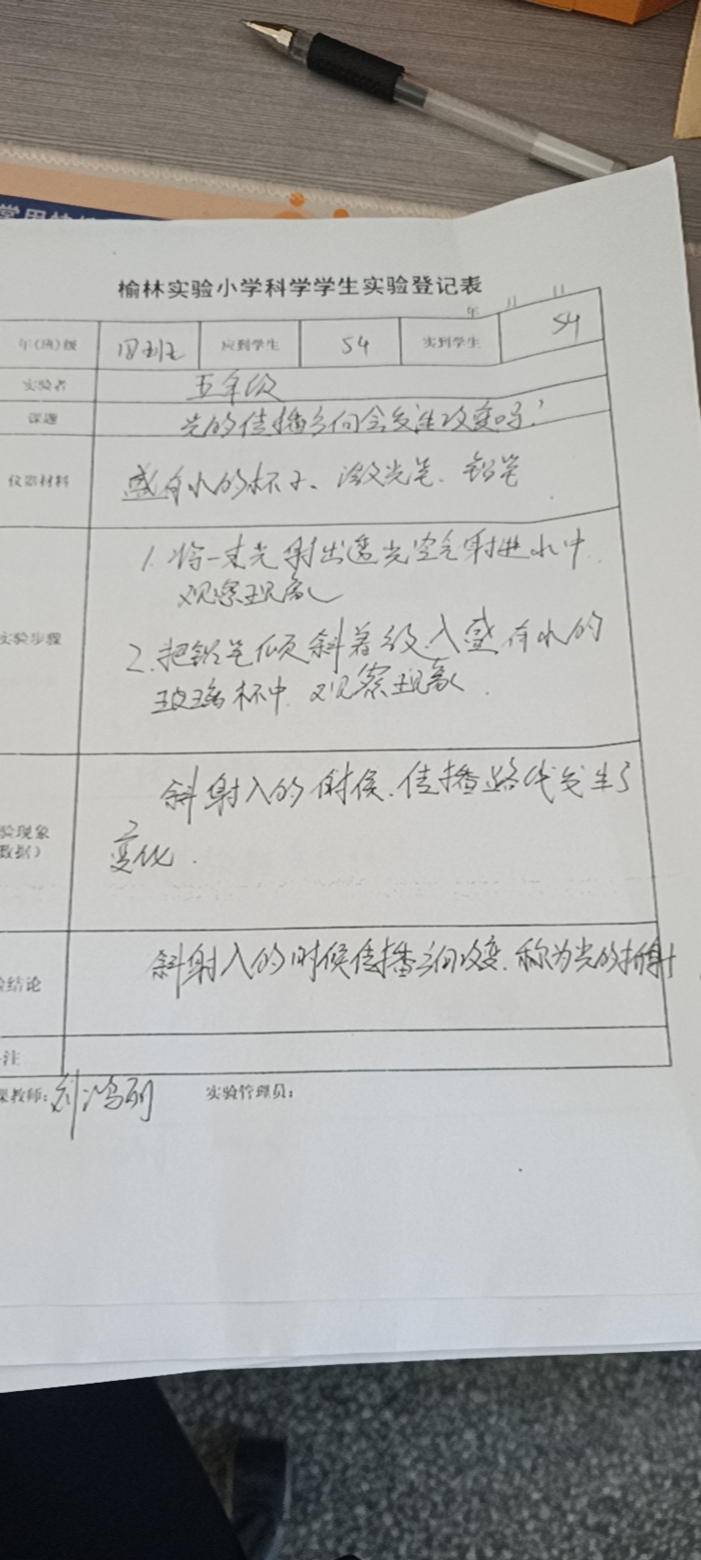 榆林实验小学科学学生实验登记表
年 月 日
年(班)级 四班 应到学生 54 实到学生 54
实验者 五年级
课题 光的传播方向会发生改变吗?
仪器材料 盛有水的杯子、激光笔、铅笔
1. 将一束光射出透光空气射进水中
观察现象
实验步骤
2. 把铅笔倾斜着放入盛有水的
玻璃杯中 观察现象.
斜射入的时候.传播路线发生了
验现象
数据)
变化.
斜射入的时候传播方向改变.称为光的折射
结论
注
课教师: 实验管理员: